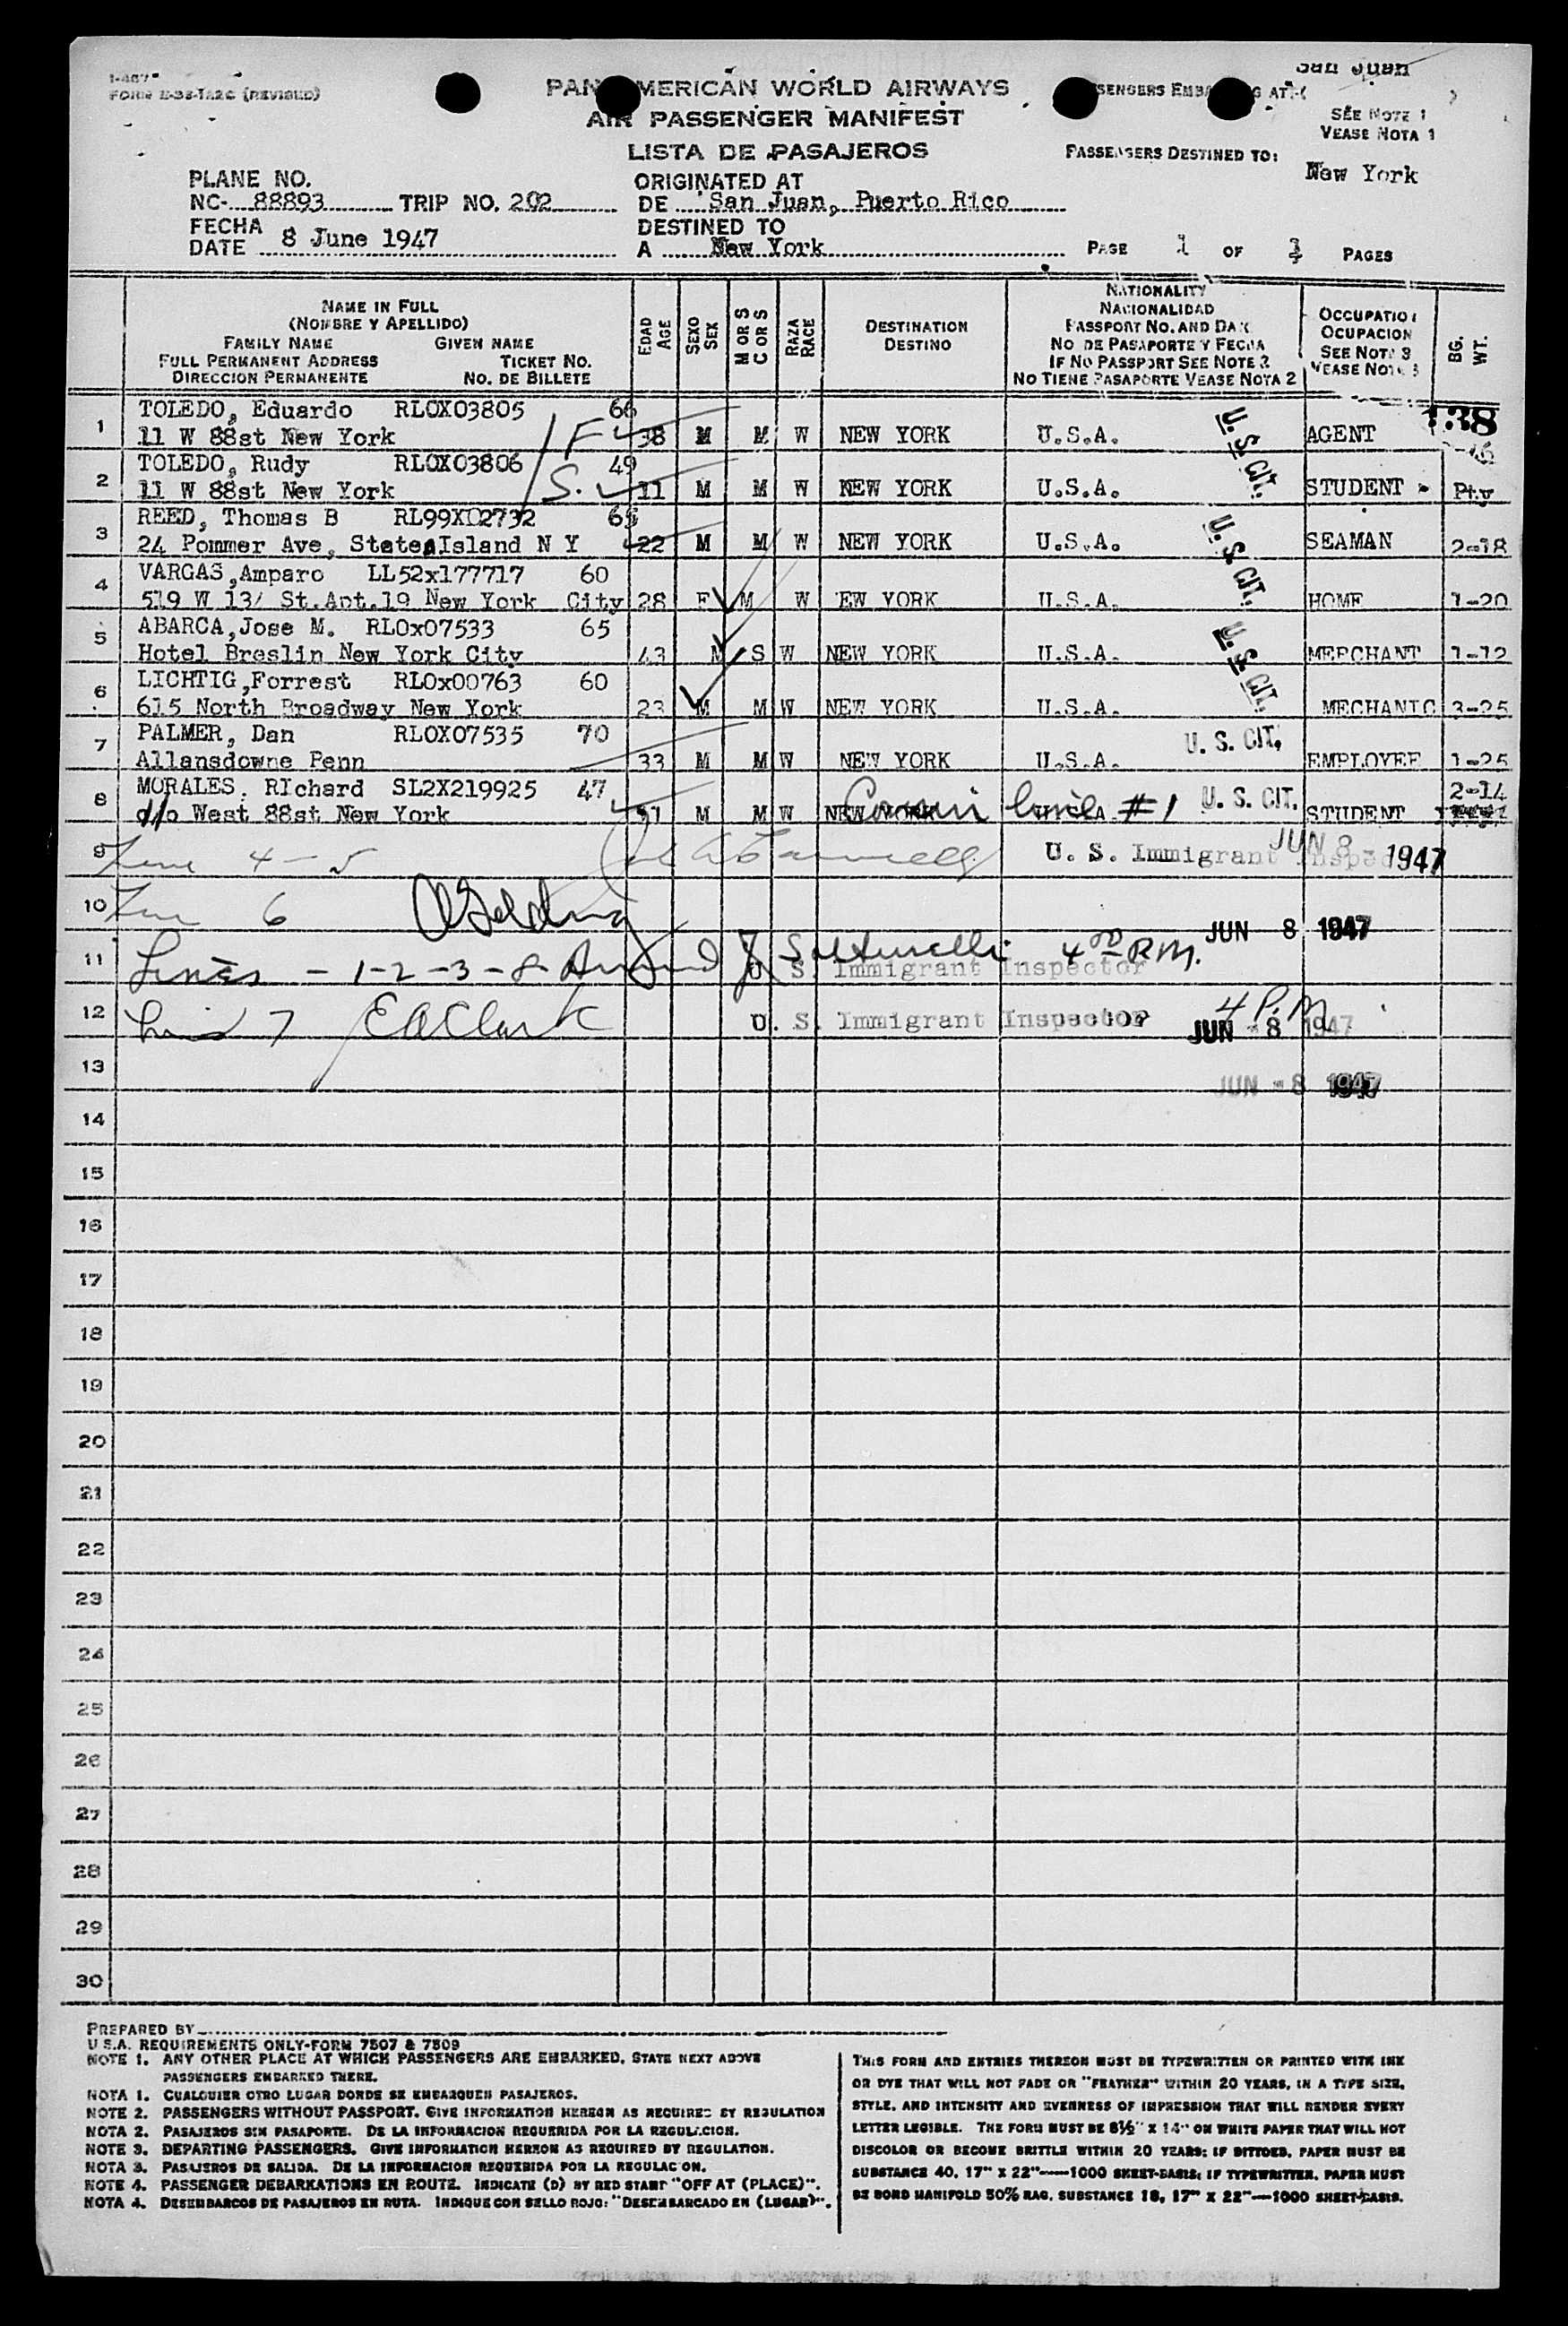 I-467
FORM E-35-TA2C (REVISED)
PAN AMERICAN WORLD AIRWAYS
AIR PASSENGER MANIFEST
LISTA DE PASAJEROS
San Juan
PASSENGERS EMBARKING AT:
SEE NOTE 1
VEASE NOTA 1
PASSENGERS DESTINED TO:
New York
PLANE NO.
NC- 88893 TRIP NO. 202
FECHA
DATE 8 June 1947
ORIGINATED AT
DE San Juan, Puerto Rico
DESTINED TO
A New York
PAGE 1 OF PAGES
NAME IN FULL
(NOMBRE Y APELLIDO)
FAMILY NAME GIVEN NAME
FULL PERMANENT ADDRESS TICKET NO.
DIRECCION PERMANENTE NO. DE BILLETE
EDAD AGE
SEXO SEX
M OR S C OR S
RAZA RACE
DESTINATION
DESTINO
NATIONALITY
NACIONALIDAD
PASSPORT NO. AND DATE
NO DE PASAPORTE Y FECHA
IF NO PASSPORT SEE NOTE 2
NO TIENE PASAPORTE VEASE NOTA 2
OCCUPATION
OCUPACION
SEE NOTE 3
VEASE NOTA 3
BG. WT.
1 TOLEDO, Eduardo RLOX03805 66
11 W 88st New York 38 M M W NEW YORK U.S.A. U. S. CIT. AGENT 138
2 TOLEDO, Rudy RLOX03806 49
11 W 88st New York 11 M M W NEW YORK U.S.A. STUDENT
3 REED, Thomas B RL99X02732 65
24 Pommer Ave, Staten Island N Y 22 M M W NEW YORK U.S.A. U. S. CIT. SEAMAN 2-18
4 VARGAS,Amparo LL52x177717 60
519 W St.Apt.19 New York City 28 F M W EW YORK U.S.A. HOME 1-20
5 ABARCA,Jose M. RLOx07533 65
Hotel Breslin New York City 43 M S W NEW YORK U.S.A. U. S. CIT. MERCHANT 1-12
6 LICHTIG,Forrest RLOx00763 60
615 North Broadway New York 23 M M W NEW YORK U.S.A. MECHANIC 3-25
7 PALMER, Dan RLOX07535 70
Allansdowne Penn 33 M M W NEW YORK U.S.A. U. S. CIT. EMPLOYEE 1-25
8 MORALES, RIchard SL2X219925 47 2-14
West 88st New York M M W NEW YORK Cousin line #1 U. S. CIT. STUDENT
9 Line 4 - 5 U. S. Immigrant Inspector JUN 8 1947
10 Line 6 JUN 8 1947
11 Lines - 1-2-3-8 U. S. Immigrant Inspector 4 00 P.M.
12 Line 7 EA Clark U. S. Immigrant Inspector 4 P.M. JUN - 8 1947
13 JUN - 8 1947
14
15
16
17
18
19
20
21
22
23
24
25
26
27
28
29
30
PREPARED BY
U.S.A. REQUIREMENTS ONLY-FORM 7507 & 7509
NOTE 1. ANY OTHER PLACE AT WHICH PASSENGERS ARE EMBARKED, STATE NEXT ABOVE
PASSENGERS EMBARKED THERE.
NOTA 1. CUALQUIER OTRO LUGAR DONDE SE EMBARQUEN PASAJEROS.
NOTE 2. PASSENGERS WITHOUT PASSPORT. GIVE INFORMATION HEREON AS REQUIRED BY REGULATION
NOTA 2. PASAJEROS SIN PASAPORTE. DE LA INFORMACION REQUERIDA POR LA REGULACION.
NOTE 3. DEPARTING PASSENGERS. GIVE INFORMATION HEREON AS REQUIRED BY REGULATION.
NOTA 3. PASAJEROS DE SALIDA. DE LA INFORMACION REQUERIDA POR LA REGULACION.
NOTE 4. PASSENGER DEBARKATIONS EN ROUTE. INDICATE (D) BY RED STAMP "OFF AT (PLACE)".
NOTA 4. DESEMBARCOS DE PASAJEROS EN RUTA. INDIQUE CON SELLO ROJO: "DESEMBARCADO EN (LUGAR)".
THIS FORM AND ENTRIES THEREON MUST BE TYPEWRITTEN OR PRINTED WITH INK
OR DYE THAT WILL NOT FADE OR "FEATHER" WITHIN 20 YEARS, IN A TYPE SIZE,
STYLE, AND INTENSITY AND EVENNESS OF IMPRESSION THAT WILL RENDER EVERY
LETTER LEGIBLE. THE FORM MUST BE 8½" X 14" ON WHITE PAPER THAT WILL NOT
DISCOLOR OR BECOME BRITTLE WITHIN 20 YEARS; IF DITTOED, PAPER MUST BE
SUBSTANCE 40, 17" X 22"—1000 SHEET-BASIS; IF TYPEWRITTEN, PAPER MUST
BE BOND MANIFOLD 50% RAG, SUBSTANCE 18, 17" X 22"—1000 SHEET-BASIS.